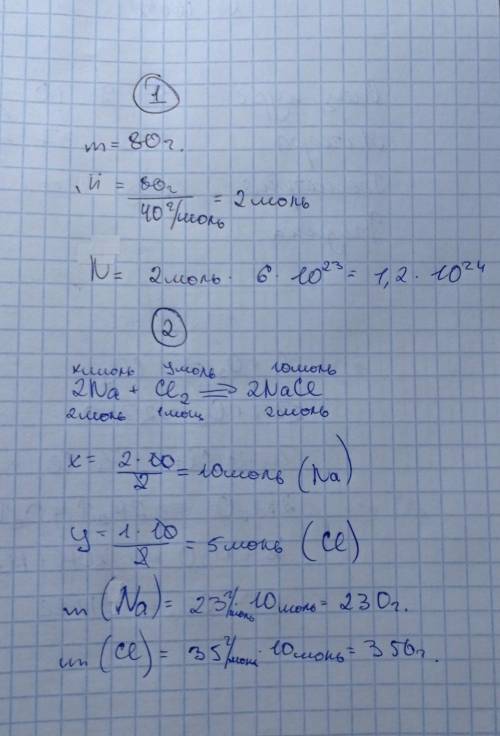 1
m = 80г.
n = 80г / 40г/моль = 2моль
N = 2моль · 6 · 10²³ = 1,2 · 10²⁴
2
xмоль yмоль 10моль
2Na + Cl₂ ⇒ 2NaCl
2моль 1моль 2моль
x = 2·10 / 2 = 10моль (Na)
y = 1·10 / 2 = 5моль (Cl)
m (Na) = 23г/моль · 10моль = 230г.
m (Cl) = 35г/моль · 10моль = 350г.